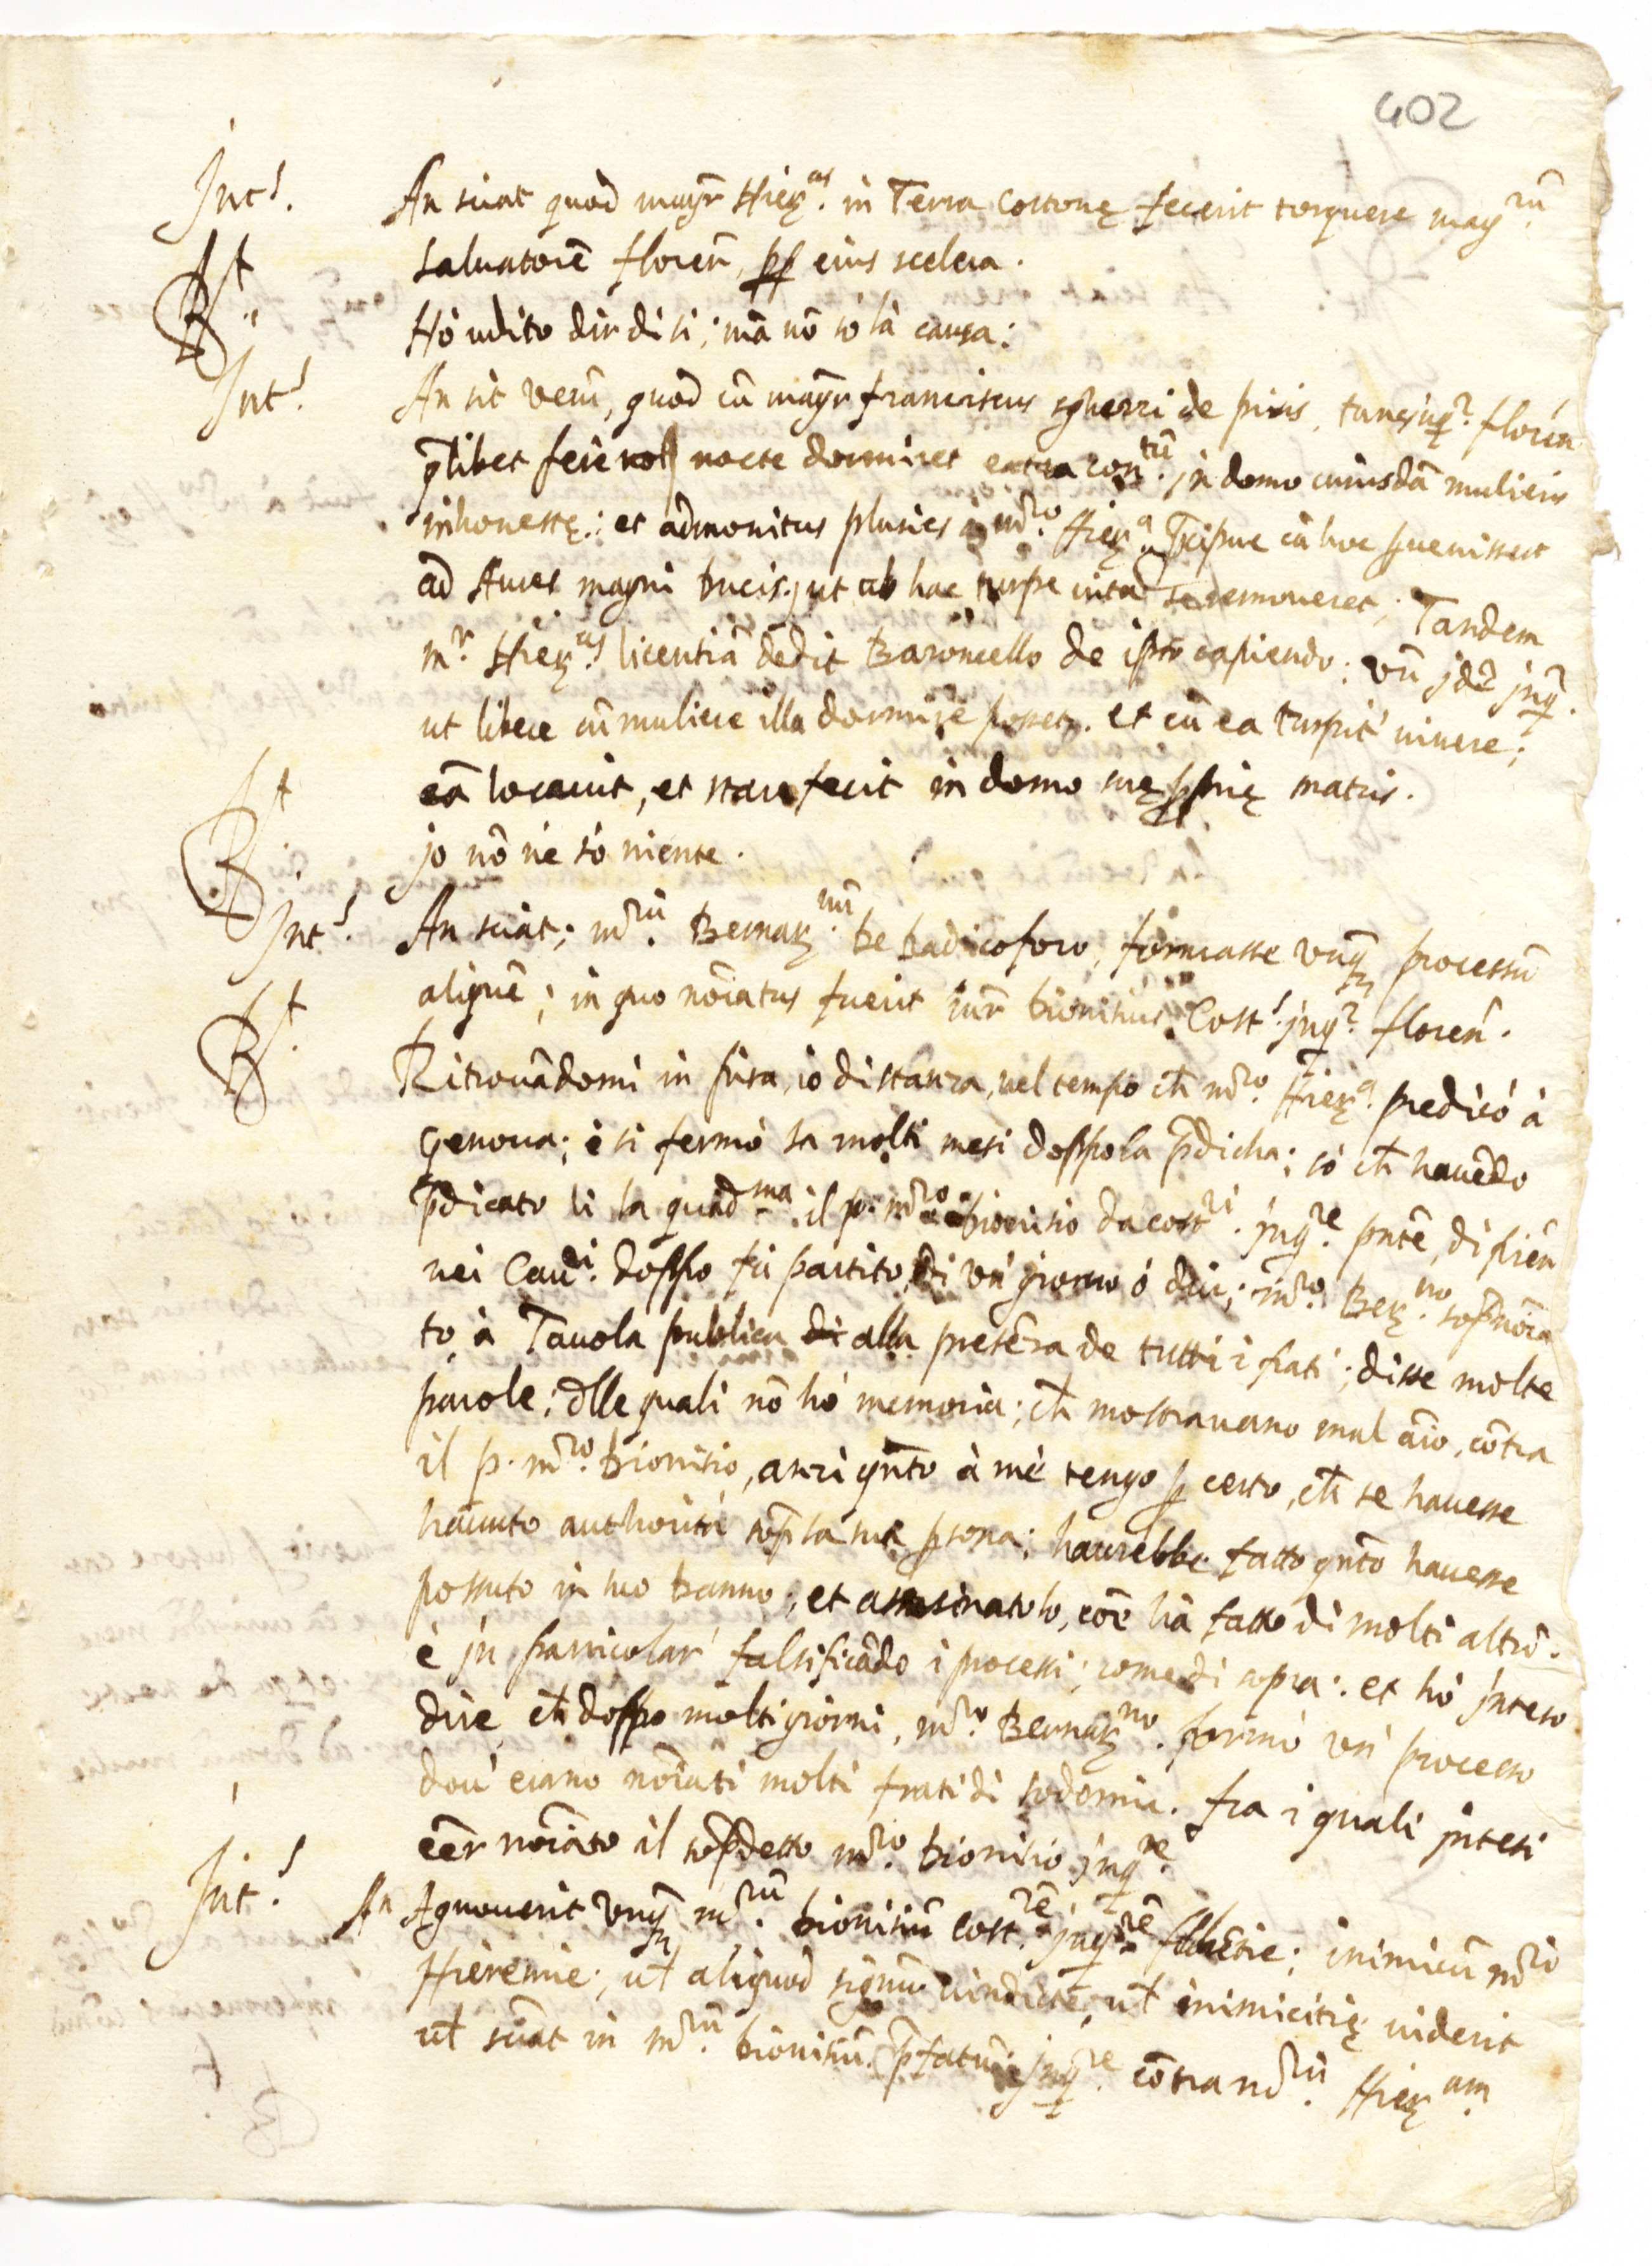 402
Int.s An sciat quod magr Hier.us in Terra Cortonę fecerit torquere mag.rū
saluatorē floreñ, pp eius scelera.
R.t Hò udito dir di si; mà nō sò là causa:
Int.s An sit verū, quod cū magr franciscus sgherri de pisis, tunc inq.r floreñ
qlibet ferè nocte dormiret extra con.tū in domo cuiusdā mulieris
inhonestę: et admonitus pluries à m.ro Hier.a Pcipue cū hoc puenisset
ad Aures magni Ducis, ut ab hac turpe uita se remoueret; Tandem
m.r Hier.us licentiā dedit Baroncello de ipso capiendo; Vn̄ id.ē inq.r
ut libere cū muliere illa dormire posset. et cū ea turpit' uiuere;
eā locauit, et stare fecit in domo suę pprię matris.
R.t jo nō nè sò niente.
Int.s An sciat; m.rū Bernar.nū de Radicoforo, formasse vnq̄ processū
aliquē; in quo nōiatus fuerit mr Dionisius Cost.s inq.r floreñ.
R.t Ritrouādomi in pisa, io di stanza, nel tempo ch̄ m.ro Hier.a predicò à
Genoua; è si fermò la molti mesi doppo la pdicha; sò ch̄ hauēdo
pdicato li la quad.ma il p. m.ro Dionisio da cost.ri inq.re pnte, di fireñ
nei Cau.di doppo fù partito, di vn' giorno ó dui; m.ro Ber.no sopnōia
to, à Tauola publica di alla presēza de tutti i frati; disse molte
parole; dlle quali nō hò memoria; ch̄ mostrauano mal aīo, cōtra
il p. m.ro Dionisio, anzi qnto à mè tengo p certo, ch̄ se hauesse
hauuto authorità sop la sua psona; haurebbe fatto qnto hauesse
possuto in suo danno; et assasinatolo, coē hà fatto di molti altri.
è in particolar' falsificādo i processi; come di sopra: et hò inteso
dire, ch̄ doppo molti giorni, m.ro Bernar.no formò vn' processo
dou' erano nōiati molti frati di sodomia. fra i quali intesi
eēr nōiato il sopdetto m.ro Dionisio inq.re
Int.s An Agnouerit vnq̄ m.rū Dionisiū Cost.rē inq.rē flōrētie; inimicū m.ri
Hieremie; ul̄ aliquod signū uindictę, ul̄ inimicitię uiderit
ul̄ sciat in m.rū Dionisiū pfatū inq.re cōtra m.rū Hier.am